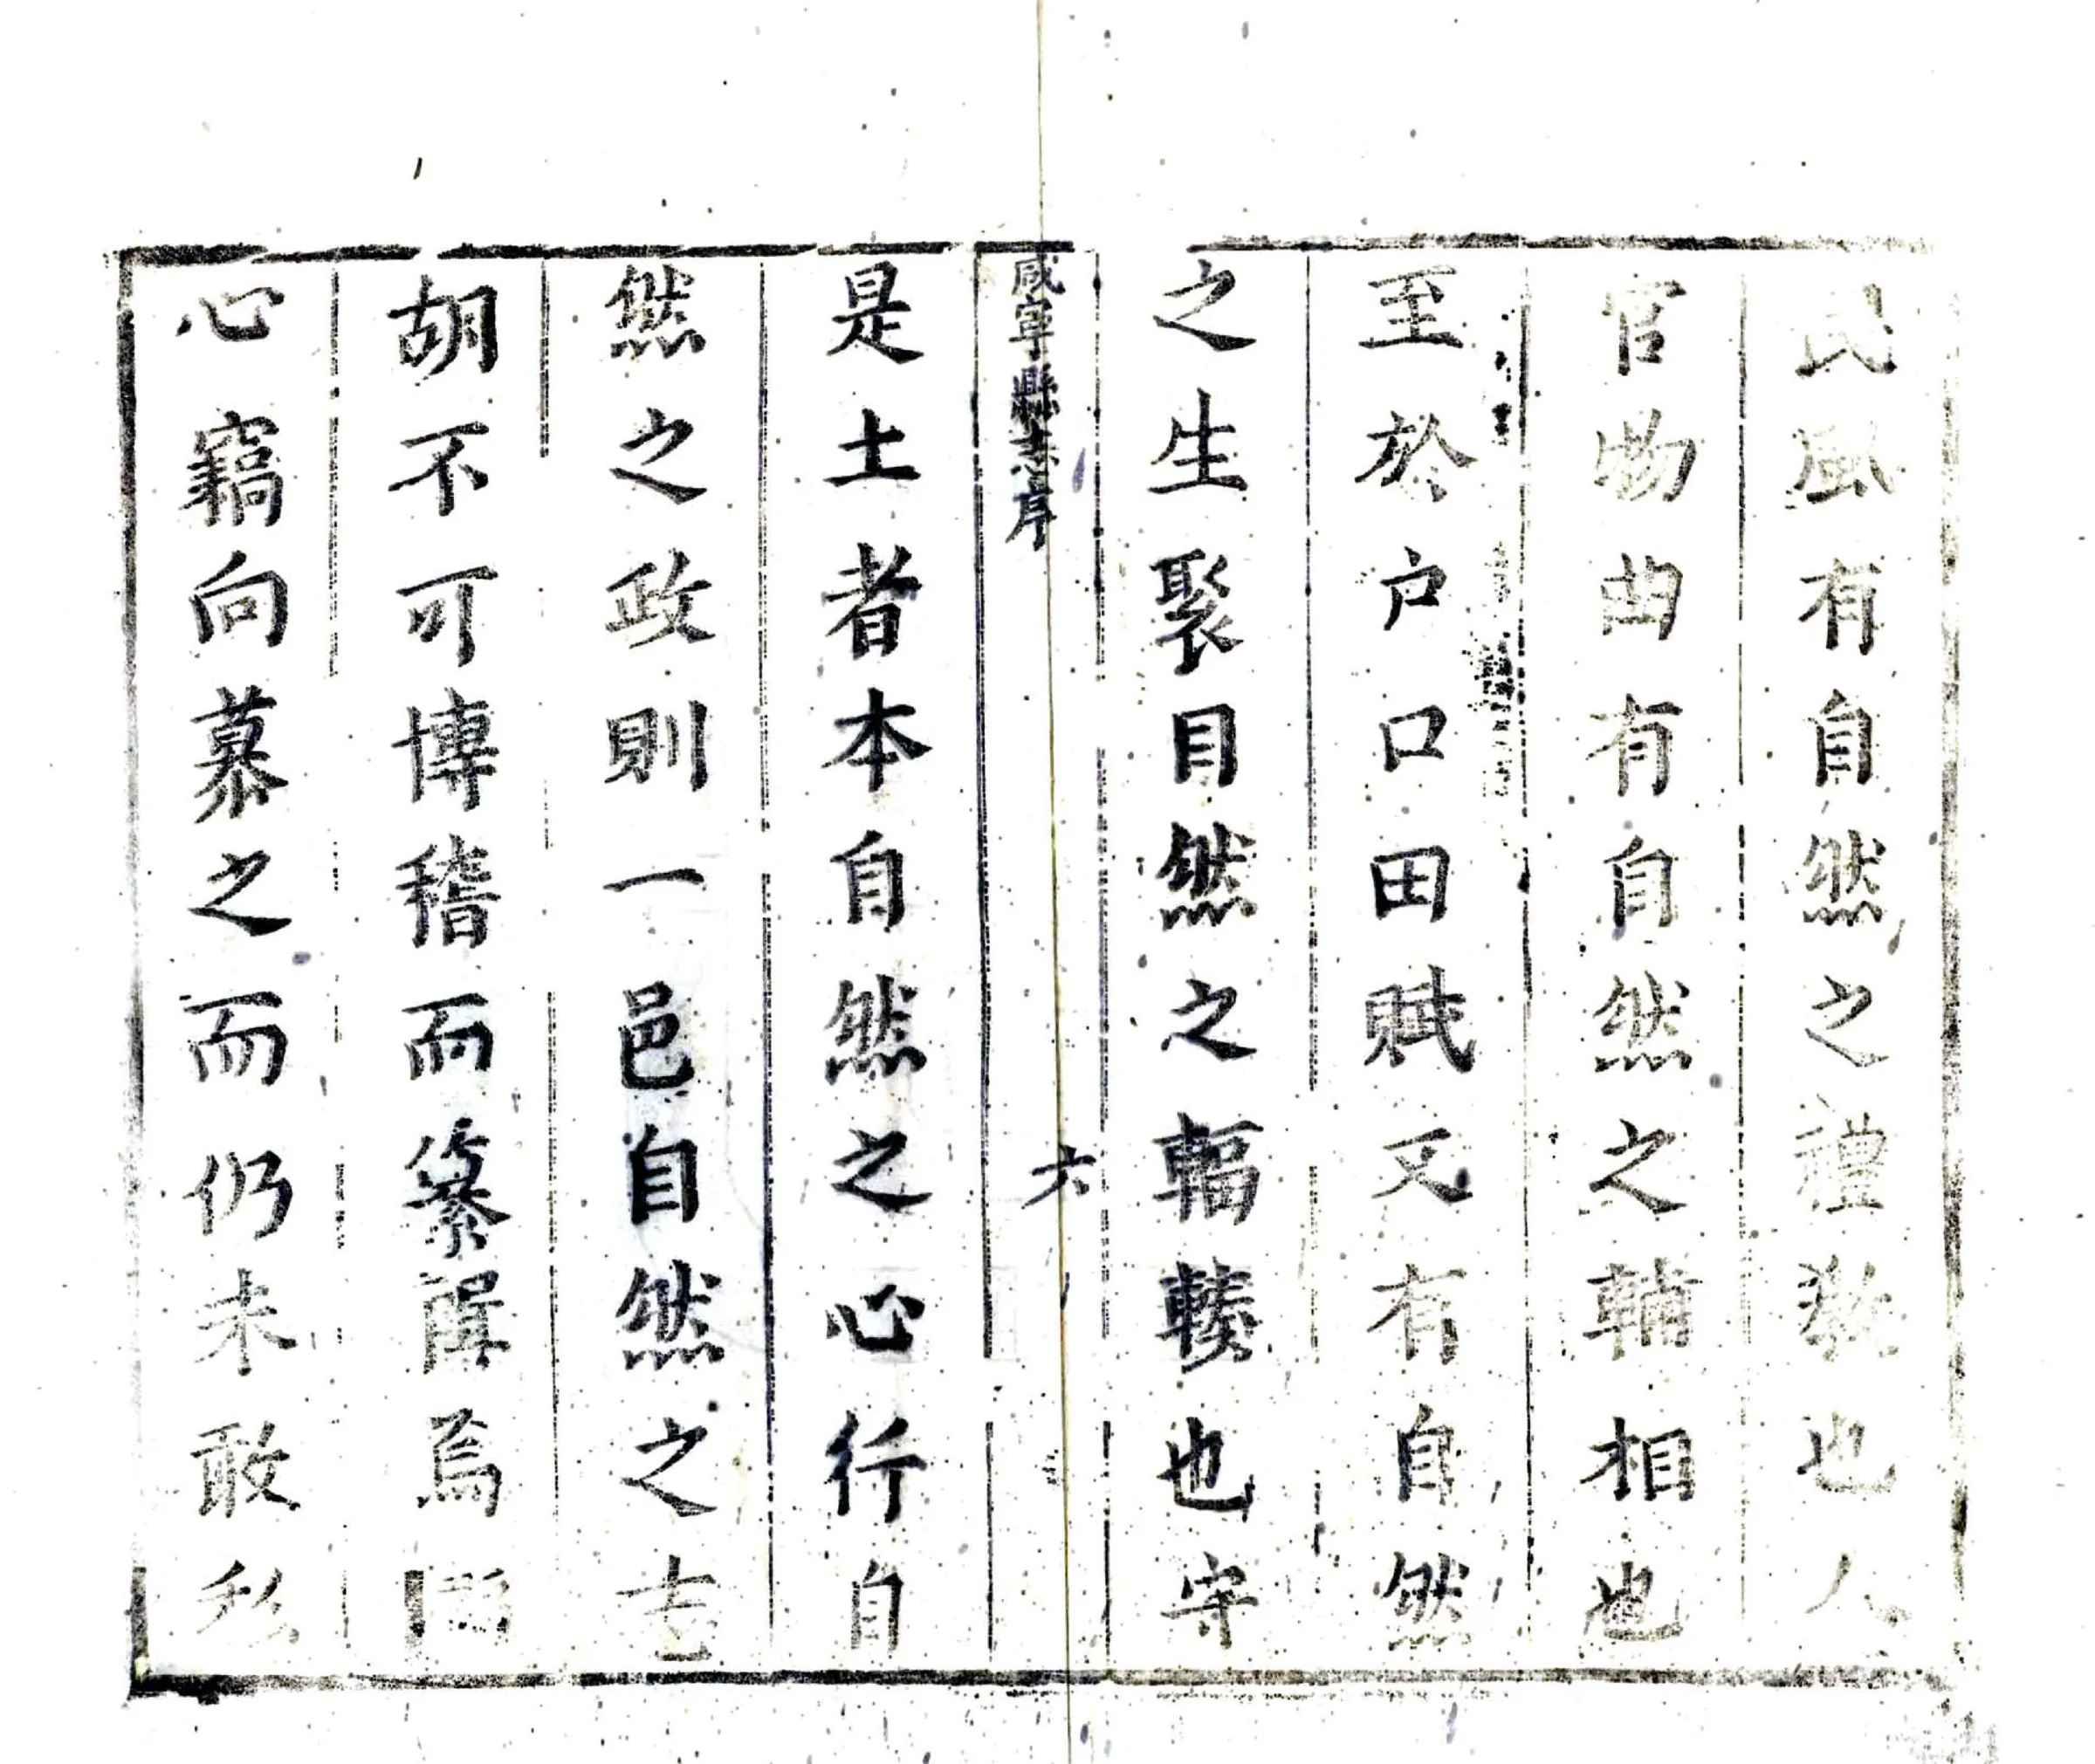 民風有自然之禮教也人
官物曲有自然之輔相也
至於户口田賦又有自然
之生聚目然之輻輳也守
咸寧縣志序
六
是土者本自然之心行自
然之政則一邑自然之志
胡不可博稽而纂輯焉
心竊向慕之而仍未敢